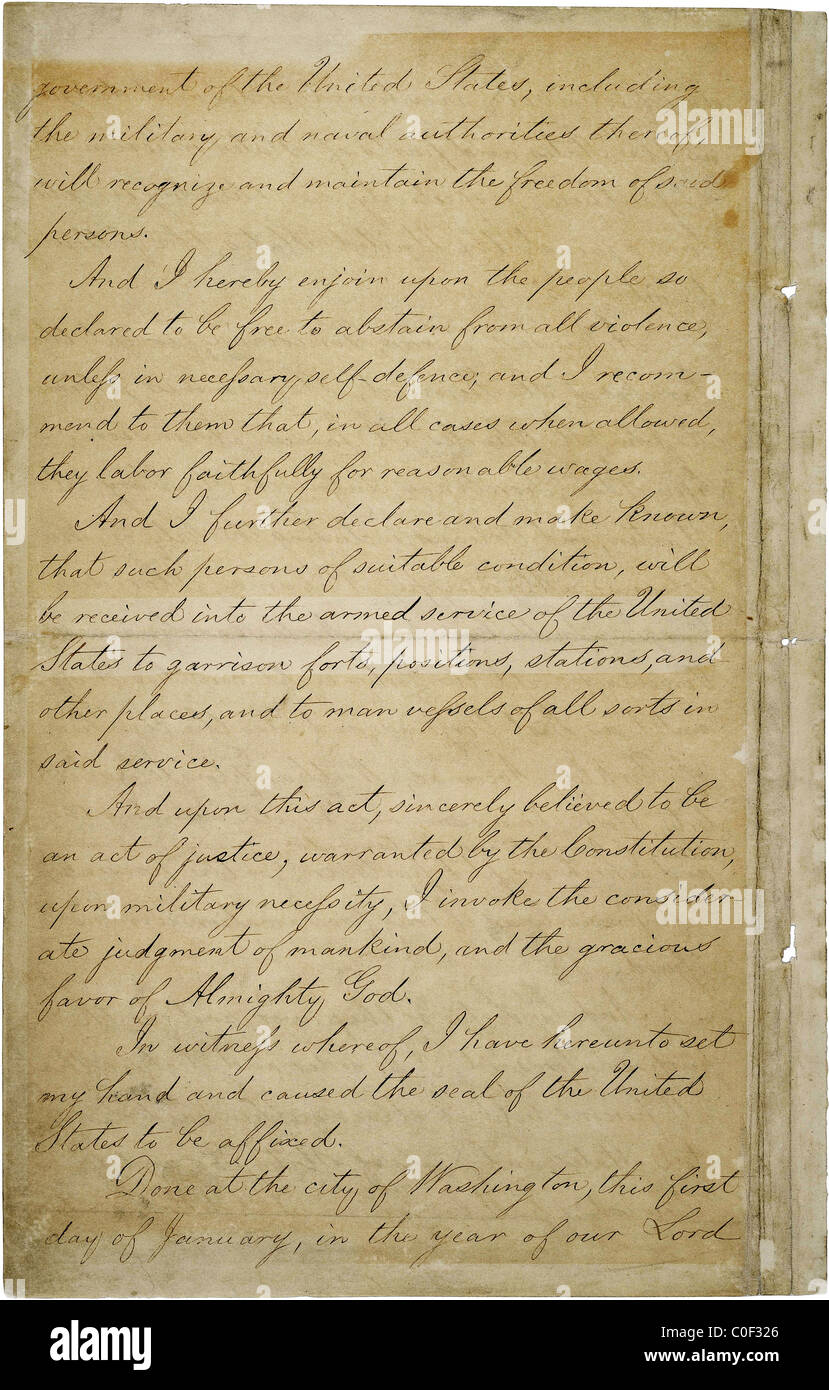 government of the United States, including
the military and naval authorities thereof,
will recognize and maintain the freedom of said
persons.
And I hereby enjoin upon the people so
declared to be free to abstain from all violence,
unless in necessary self-defence; and I recom-
mend to them that, in all cases when allowed,
they labor faithfully for reasonable wages.
And I further declare and make known,
that such persons of suitable condition, will
be received into the armed service of the United
States to garrison forts, positions, stations, and
other places, and to man vessels of all sorts in
said service.
And upon this act, sincerely believed to be
an act of justice, warranted by the Constitution,
upon military necessity, I invoke the consider-
ate judgment of mankind, and the gracious
favor of Almighty God.
In witness whereof, I have hereunto set
my hand and caused the seal of the United
States to be affixed.
Done at the city of Washington, this first
day of January, in the year of our Lord
alamy
alamy
alamy
a alamy stock photo
Image ID: C0F326
www.alamy.com